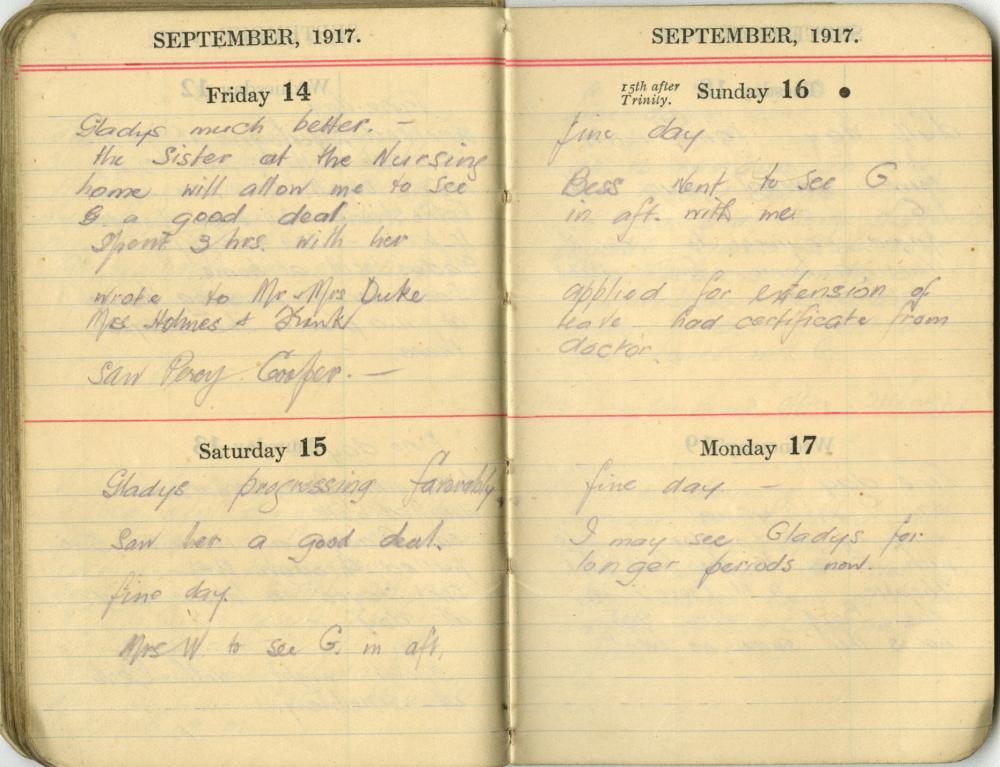 SEPTEMBER, 1917.
Friday 14
Gladys much better. —
the Sister at the Nursing
home will allow me to see
G. a good deal.
Spent 3 hrs. with her
wrote to Mr & Mrs Duke
Mrs Holmes & Frank
Saw Percy Cooper. —
Saturday 15
Gladys progressing favorably
Saw her a good deal.
fine day.
Mrs W. to see G. in aft.
SEPTEMBER, 1917.
15th after Trinity. Sunday 16 ●
fine day
Bess went to see G
in aft. with me.
applied for extension of
leave had certificate from
doctor.
Monday 17
fine day —
I may see Gladys for
longer periods now.